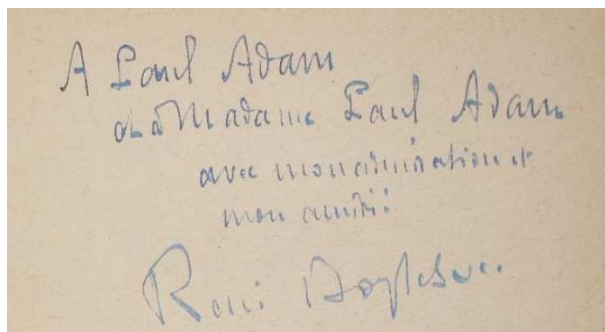 A Paul Adam
et à Madame Paul Adam
avec mon admiration et
mon amitié
René Boylesve.